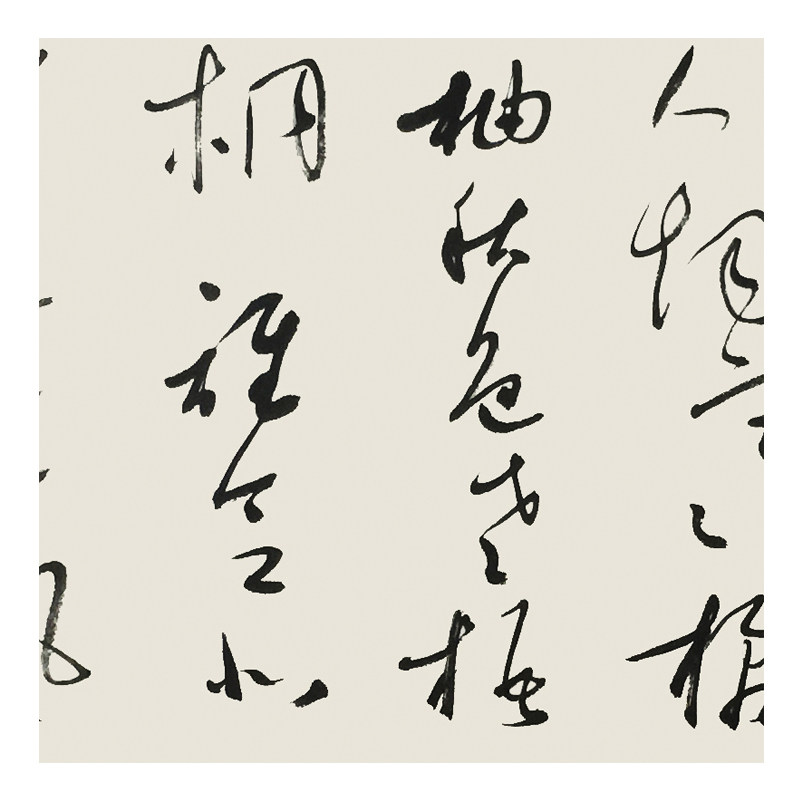 人煙寒橘
柚秋色老梧
桐誰念北